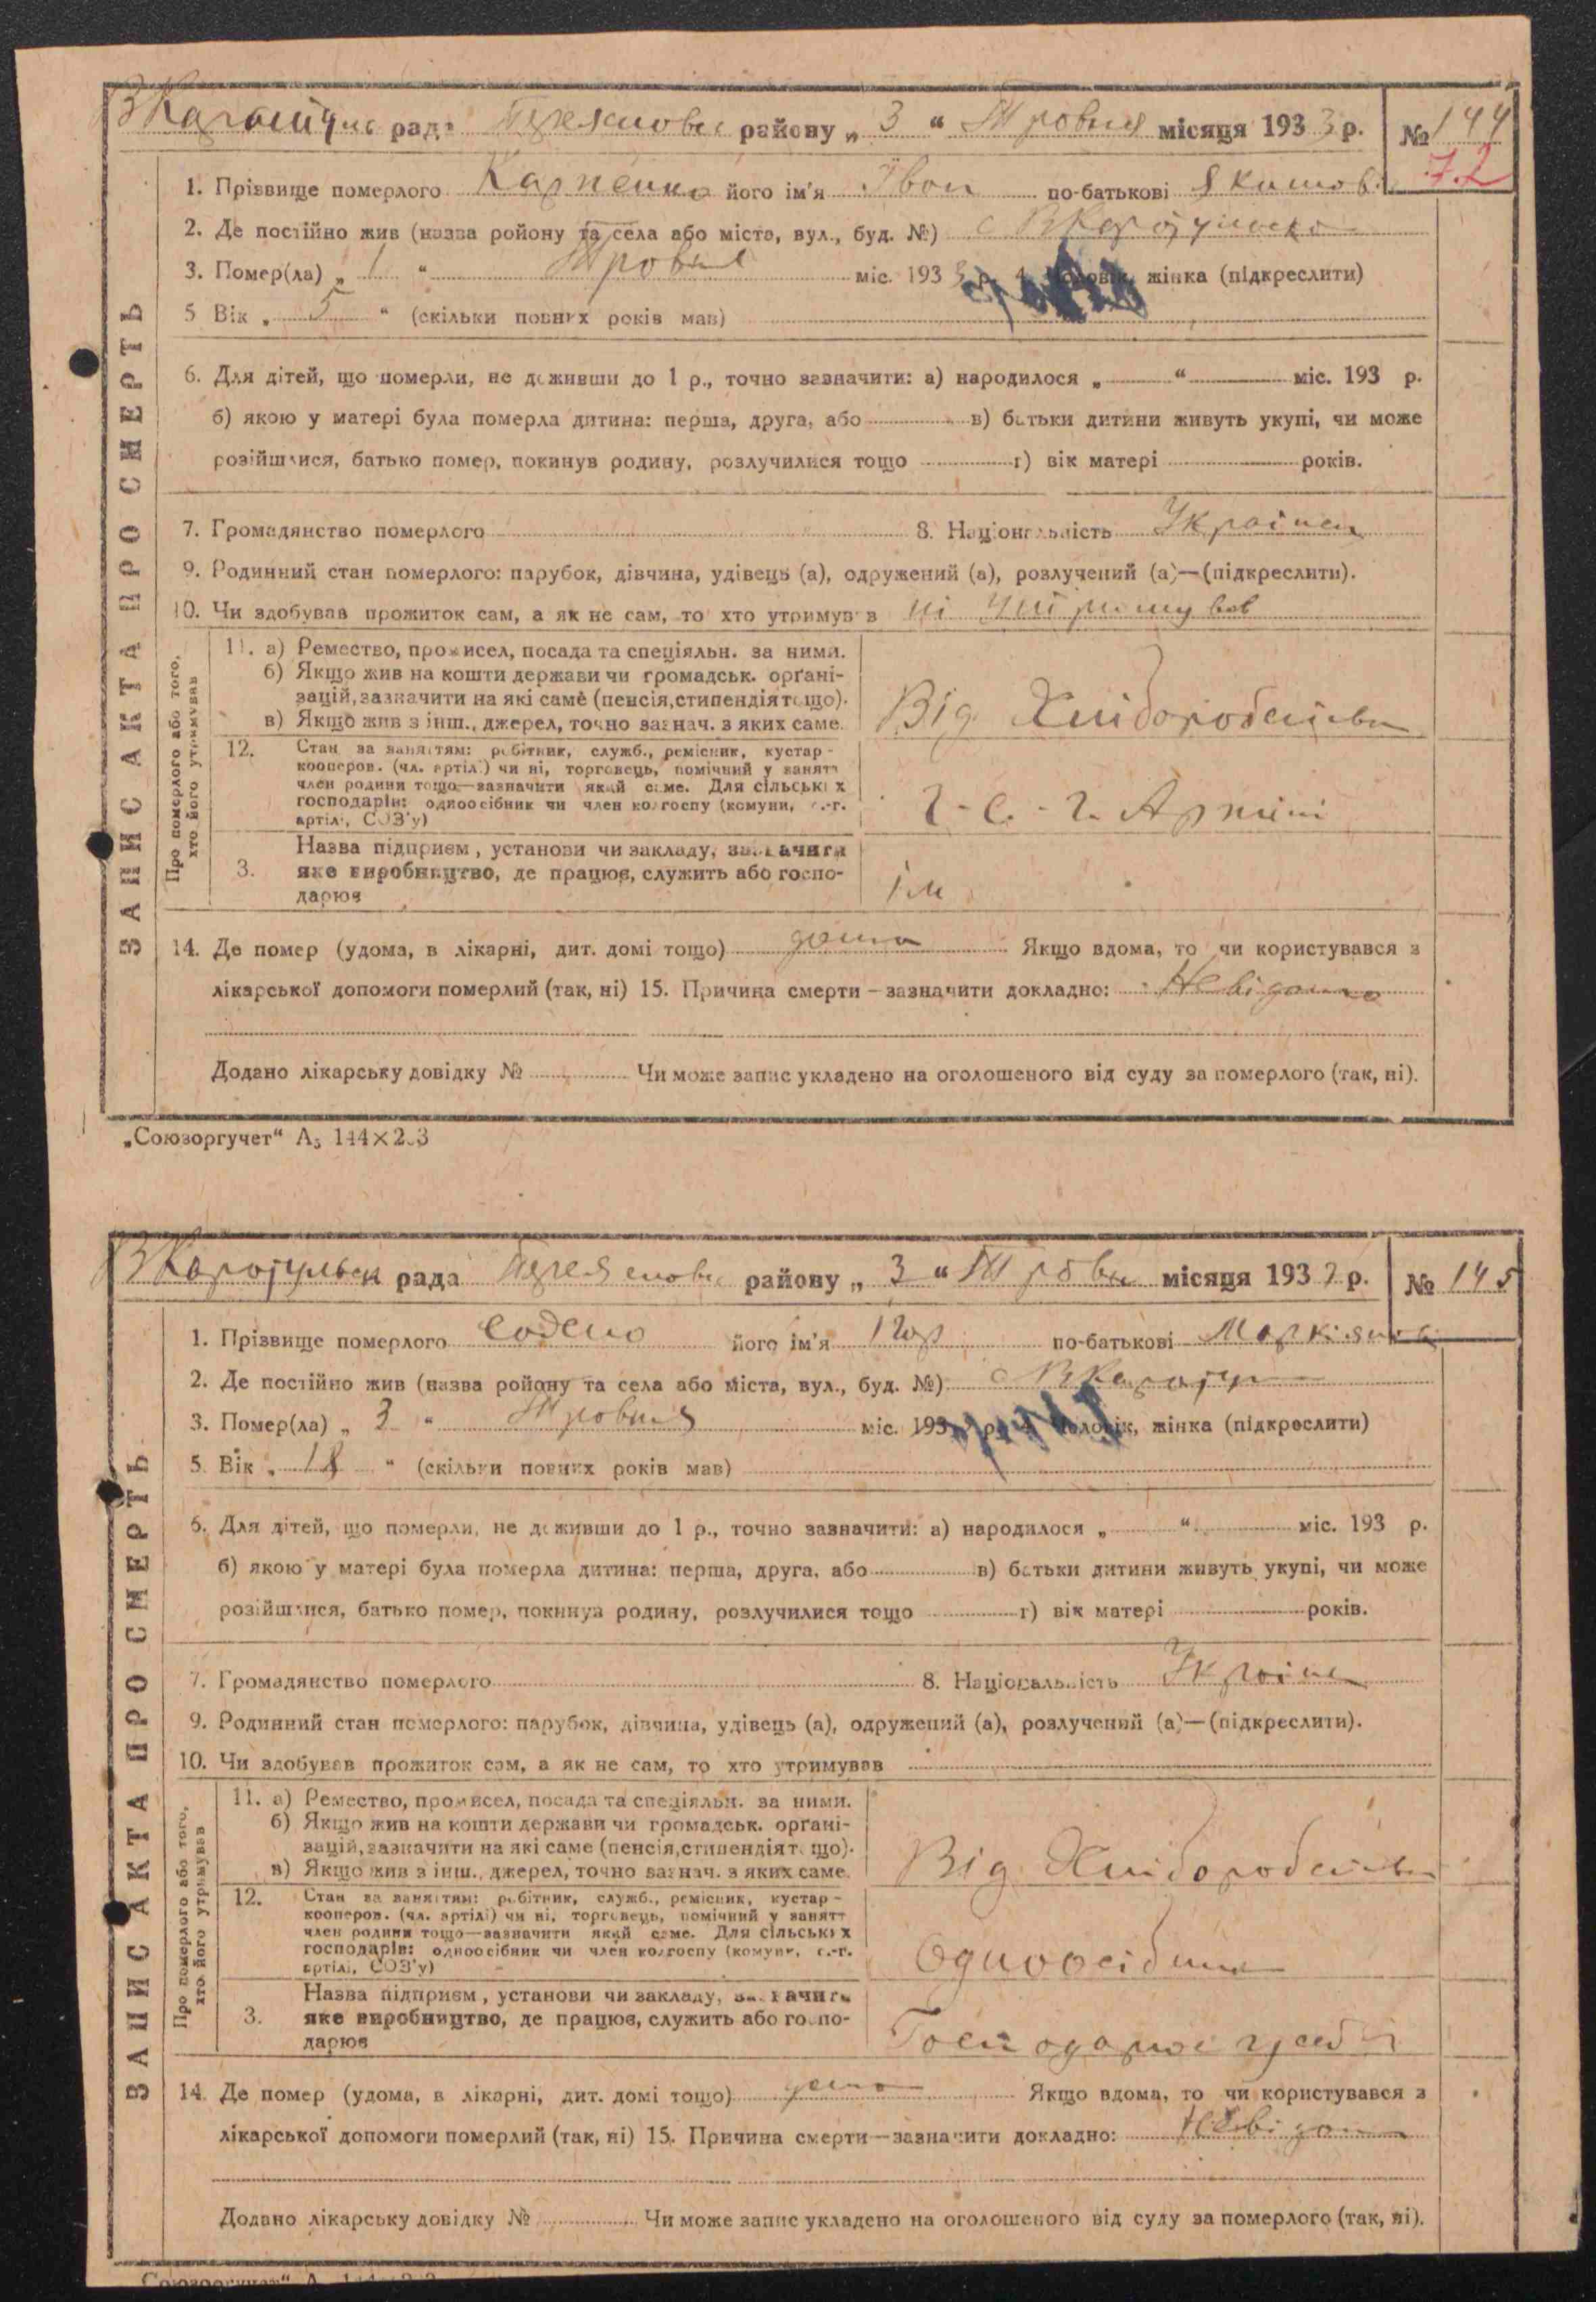 рада Переяслов району „ 3 “ Травня місяця 1933 р. № 144
72
1. Прізвище померлого Карпенко його ім'я Іван по-батькові Якимов
2. Де постійно жив (назва ройону та села або міста, вул., буд. №) с
3. Помер(ла) „ 1 “ Травня міс. 193 3 р. 4. чоловік, жінка (підкреслити)
5 Вік „ 5 “ (скільки повних років мав)
6. Для дітей, що померли, не доживши до 1 р., точно зазначити: а) народилося „ “ міс. 193 р.
б) якою у матері була померла дитина: перша, друга, або в) батьки дитини живуть укупі, чи може
розійшлися, батько помер, покинув родину, розлучилися тощо г) вік матері років.
7. Громадянство померлого 8. Національність Українец
9. Родинний стан померлого: парубок, дівчина, удівець (а), одружений (а), розлучений (а)—(підкреслити).
10. Чи здобував прожиток сам, а як не сам, то хто утримував ні
Про померлого або того, хто його утримував
11. а) Ремество, промисел, посада та спеціяльн. за ними.
б) Якщо жив на кошти держави чи громадськ. орґані-
зацій, зазначити на які саме (пенсія, стипендія тощо).
в) Якщо жив з інш., джерел, точно зазнач. з яких саме.
Від Хліборобства
12. Стан за заняттям: робітник, служб., ремісник, кустар -
кооперов. (чл. артілі) чи ні, торговець, помічний у занятт
член родини тощо—зазначити який саме. Для сільських
господарів: одноосібник чи член колгоспу (комуни, с.-г.
артілі, СОЗ'у)
Артілі
3. Назва підприєм, установи чи закладу, зазначити
яке виробництво, де працює, служить або госпо-
дарює
ім
14. Де помер (удома, в лікарні, дит. домі тощо) дома Якщо вдома, то чи користувався з
лікарської допомоги померлий (так, ні) 15. Причина смерти — зазначити докладно: Невідомо
Додано лікарську довідку № Чи може запис укладено на оголошеного від суду за померлого (так, ні).
ЗАПИС АКТА ПРО СМЕРТЬ
„Союзоргучет“ А5 144×203
рада Переяслов району „ 3 “ Травн місяця 1933 р. № 145
1. Прізвище померлого його ім'я по-батькові Маркіянов
2. Де постійно жив (назва ройону та села або міста, вул., буд. №) с
3. Помер(ла) „ 3 “ Травня міс. 193 р. 4. чоловік, жінка (підкреслити)
5. Вік „ 18 “ (скільки повних років мав)
6. Для дітей, що померли, не доживши до 1 р., точно зазначити: а) народилося „ “ міс. 193 р.
б) якою у матері була померла дитина: перша, друга, або в) батьки дитини живуть укупі, чи може
розійшлися, батько помер, покинув родину, розлучилися тощо г) вік матері років.
7. Громадянство померлого 8. Національність Україн
9. Родинний стан померлого: парубок, дівчина, удівець (а), одружений (а), розлучений (а)—(підкреслити).
10. Чи здобував прожиток сам, а як не сам, то хто утримував
Про померлого або того, хто його утримував
11. а) Ремество, промисел, посада та спеціяльн. за ними.
б) Якщо жив на кошти держави чи громадськ. орґані-
зацій, зазначити на які саме (пенсія, стипендія тощо).
в) Якщо жив з інш., джерел, точно зазнач. з яких саме.
Від Хліборобства
12. Стан за заняттям: робітник, служб., ремісник, кустар -
кооперов. (чл. артілі) чи ні, торговець, помічний у занятт
член родини тощо—зазначити який саме. Для сільських
господарів: одноосібник чи член колгоспу (комуни, с.-г.
артілі, СОЗ'у)
Одноосібник
3. Назва підприєм, установи чи закладу, зазначить
яке виробництво, де працює, служить або госпо-
дарює
Господарює
14. Де помер (удома, в лікарні, дит. домі тощо) дома Якщо вдома, то чи користувався з
лікарської допомоги померлий (так, ні) 15. Причина смерти—зазначити докладно: Невідом
Додано лікарську довідку № Чи може запис укладено на оголошеного від суду за померлого (так, ні).
ЗАПИС АКТА ПРО СМЕРТЬ